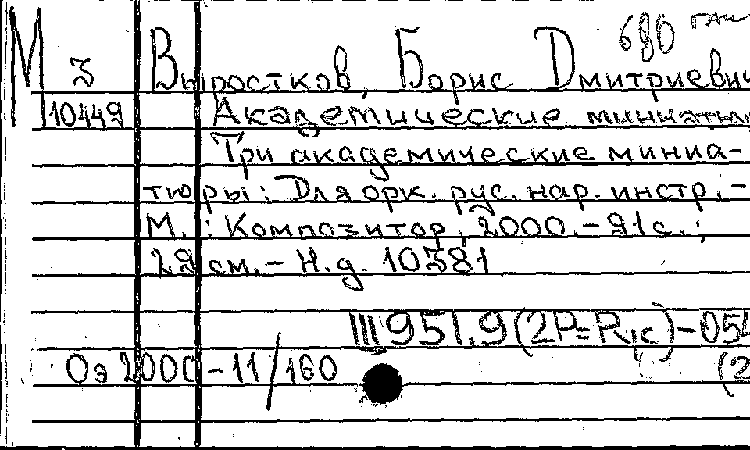 М 3 Выростков, Борис Дмитриевич
10449 Академические миниатюры
Три академические миниа-
тюры: Для орк. рус. нар. инстр. -
М. : Композитор, 2000. - 21 с. ;
29 см. - Н.д. 10381
III 951.9(2Р=R
Оз 2000-11/160